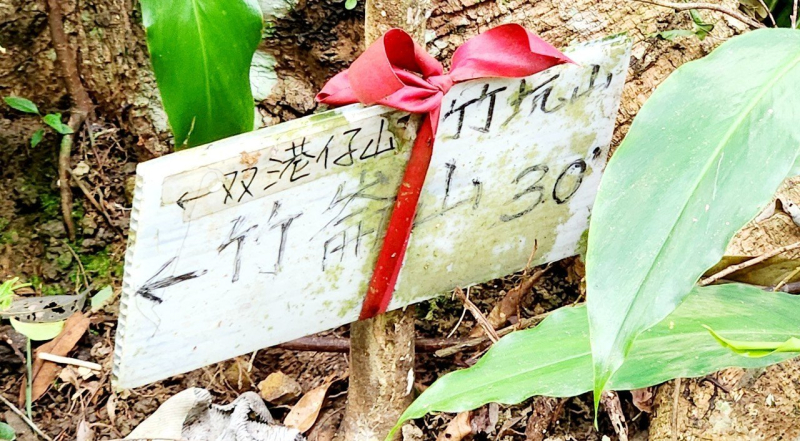 ←双港仔山·竹坑山
←竹崙山30'